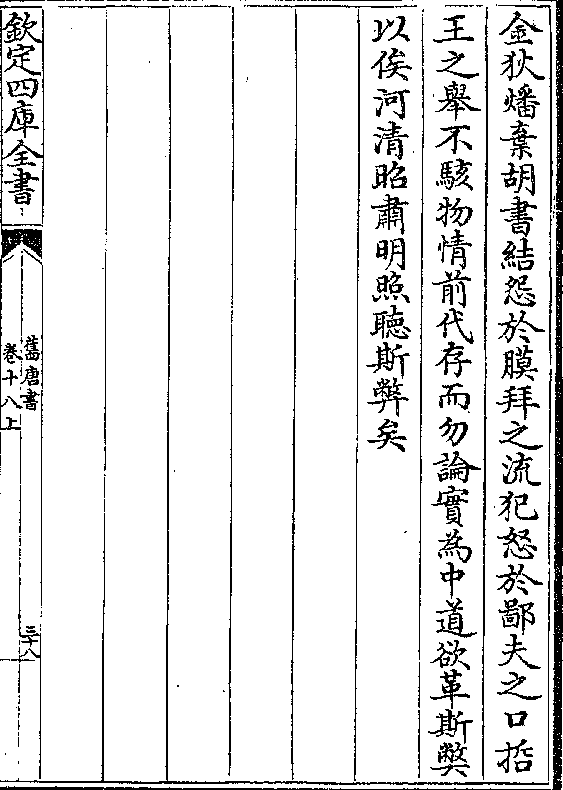 金狄燔棄胡書結怨於膜拜之流犯怒於鄙夫之口哲
王之舉不駭物情前代存而勿論實為中道欲革斯獘
以俟河清昭肅明照聴斯弊矣
欽定四庫全書
舊唐書
卷十八上
三十八